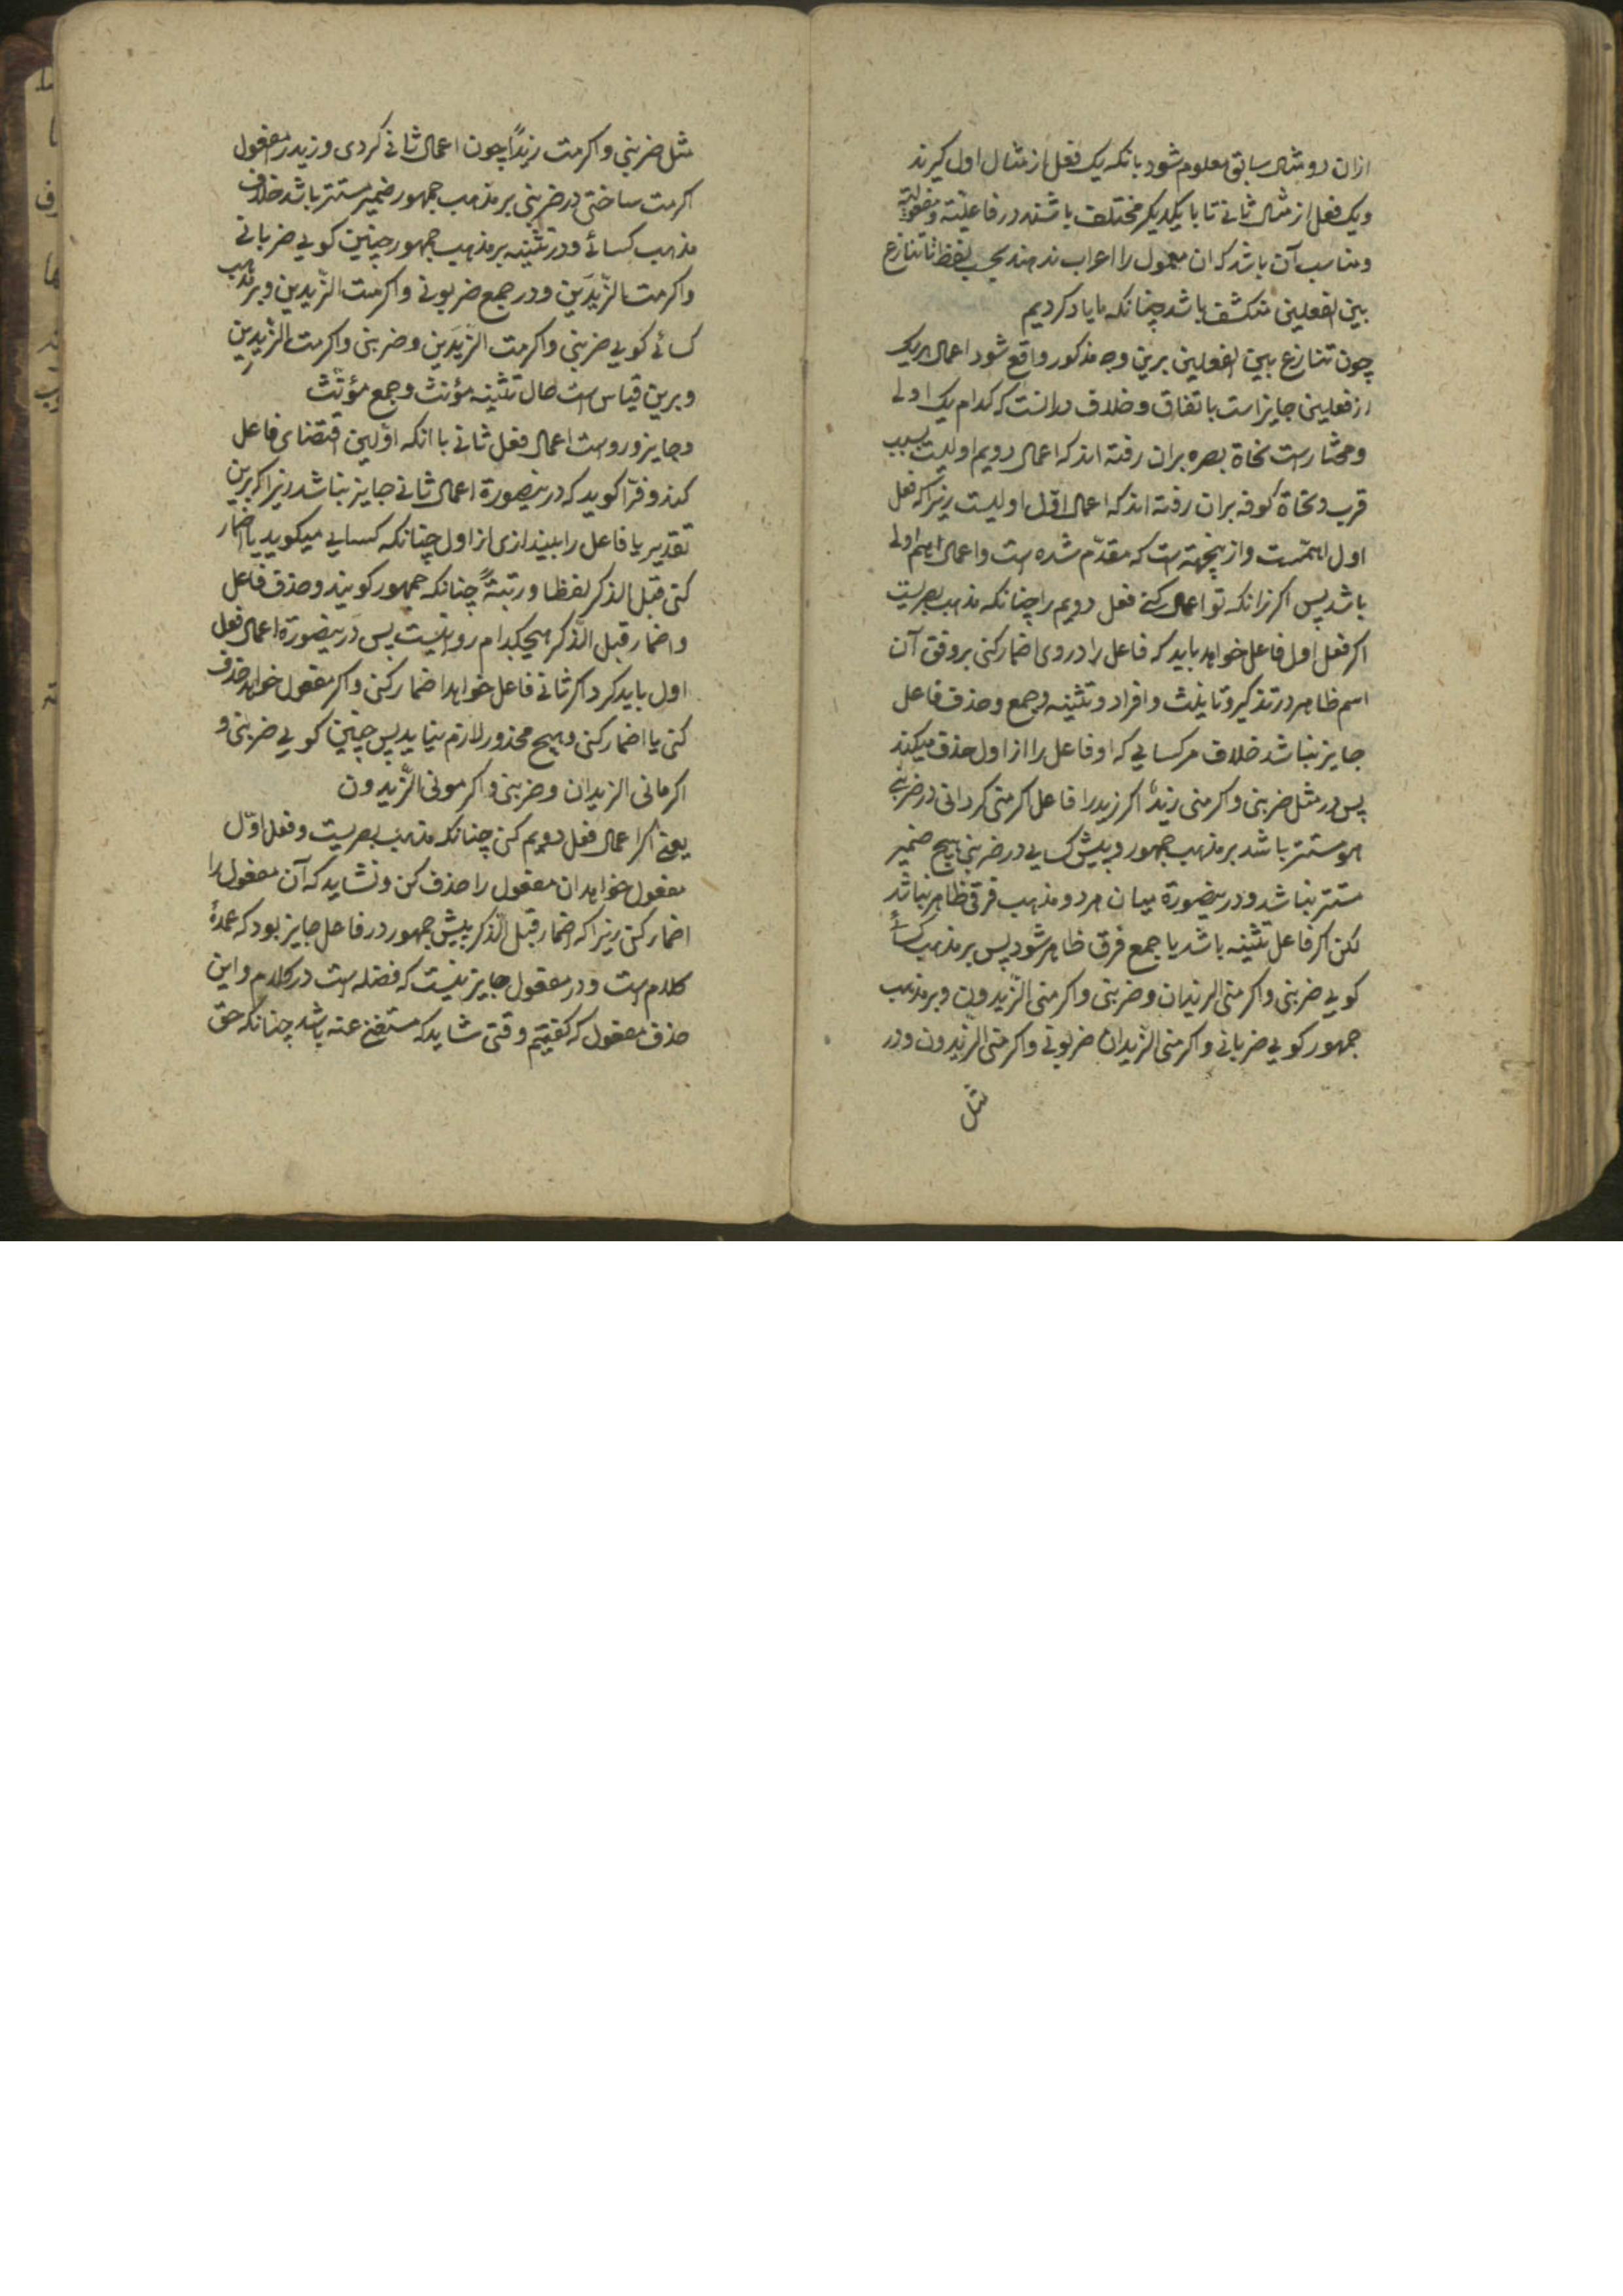 ازان دو مثال سابق معلوم شود بانکه یک فعل از مثال اول گیرند
و یک فعل از مثال ثانی تا با یکدیگر مختلف باشند در فاعلیته و مفعولیته
و مناسب آن باشد که ان معمول را اعراب ندهند بحسب لفظ تا تنازع
بین الفعلین منکشف باشد چنانکه ما یاد کردیم
چون تنازع بین الفعلین برین وجه مذکور واقع شود اعمال هر یک
از فعلین جایز است باتفاق و خلاف درانست که کدام یک اولی
و مختارست نحاة بصره بران رفته اند که اعمال دویم اولیست بسبب
قرب و نحاة کوفه بران رفته اند که اعمال اوّل اولیست زیراکه فعل
اول اهمّست و از ینجهته است که مقدّم شده است و اعمال اهم اولی
باشد پس اکر زانکه تو اعمال کنی فعل دویم را چنانکه مذهب بصریست
اکر فعل اول فاعل خواهد باید که فاعل را در وی اضمار کنی بر وفق آن
اسم ظاهر در تذکیر و تانیث و افراد و تثنیه و جمع و حذف فاعل
جایز نباشد خلاف مر کسایی که او فاعل را از اول حذف میکند
پس در مثل ضربنی و اکرمنی زیدٌ اکر زید را فاعل اکرمنی کردانی در ضربنی
هو مستتر باشد بر مذهب جمهور و پیش کسایی در ضربنی هیچ ضمیر
مستتر نباشد و در ینصورة میان هر دو مذهب فرقی ظاهر نباشد
لکن اکر فاعل تثنیه باشد یا جمع فرق ظاهر شود پس بر مذهب کسائی
کویی ضربنی و اکرمنی الزیدان و ضربنی و اکرمنی الزّیدون و بر مذهب
جمهور کویی ضربانی و اکرمنی الزّیدان ضربونی و اکرمنی الزیدون و در
مثل
مثل ضربنی و اکرمت زیدًا چون اعمال ثانی کردی و زید را مفعول
اکرمت ساختی در ضربنی بر مذهب جمهور ضمیر مستتر باشد خلاف
مذهب کسائی و در تثنیه بر مذهب جمهور چنین کویی ضربانی
و اکرمت الزّیدَین و در جمع ضربونی و اکرمت الزّیدین و بر مذهب
کسائی کویی ضربنی و اکرمت الزّیدَین و ضربنی و اکرمت الزّیدِین
و برین قیاس است حال تثنیه مؤنث و جمع مؤنّث
و جایز و رواست اعمال فعل ثانی با انکه اوّلین اقتضای فاعل
کند و فرّا کوید که در ینصورة اعمال ثانی جایز نباشد زیرا که برین
تقدیر یا فاعل را بیندازی از اول چنانکه کسایی میکوید یا اضمار
کنی قبل الذکر لفظا و رتبتةً چنانکه جمهور کویند و حذف فاعل
و اضمار قبل الذّکر هیچکدام روا نیست پس در ینصورة اعمال فعل
اول باید کرد اکر ثانی فاعل خواهد اضمار کنی و اکر مفعول خواهد حذف
کنی یا اضمار کنی و هیچ محذور لازم نیاید پس چنین کویی ضربنی و
اکرمانی الزیدان و ضربنی و اکرمونی الزّیدون
یعنی اکر اعمال فعل دویم کنی چنانکه مذهب بصریست و فعل اوّل
مفعول خواهد ان مفعول را حذف کن و نشاید که آن مفعول را
اضمار کنی زیرا که اضمار قبل الذّکر پیش جمهور در فاعل جایز بود که عمدهٔ
کلام است و در مفعول جایز نیست که فضله است در کلام و این
حذف مفعول که کفتیم وقتی شاید که مستغنی عنه باشد چنانکه حق